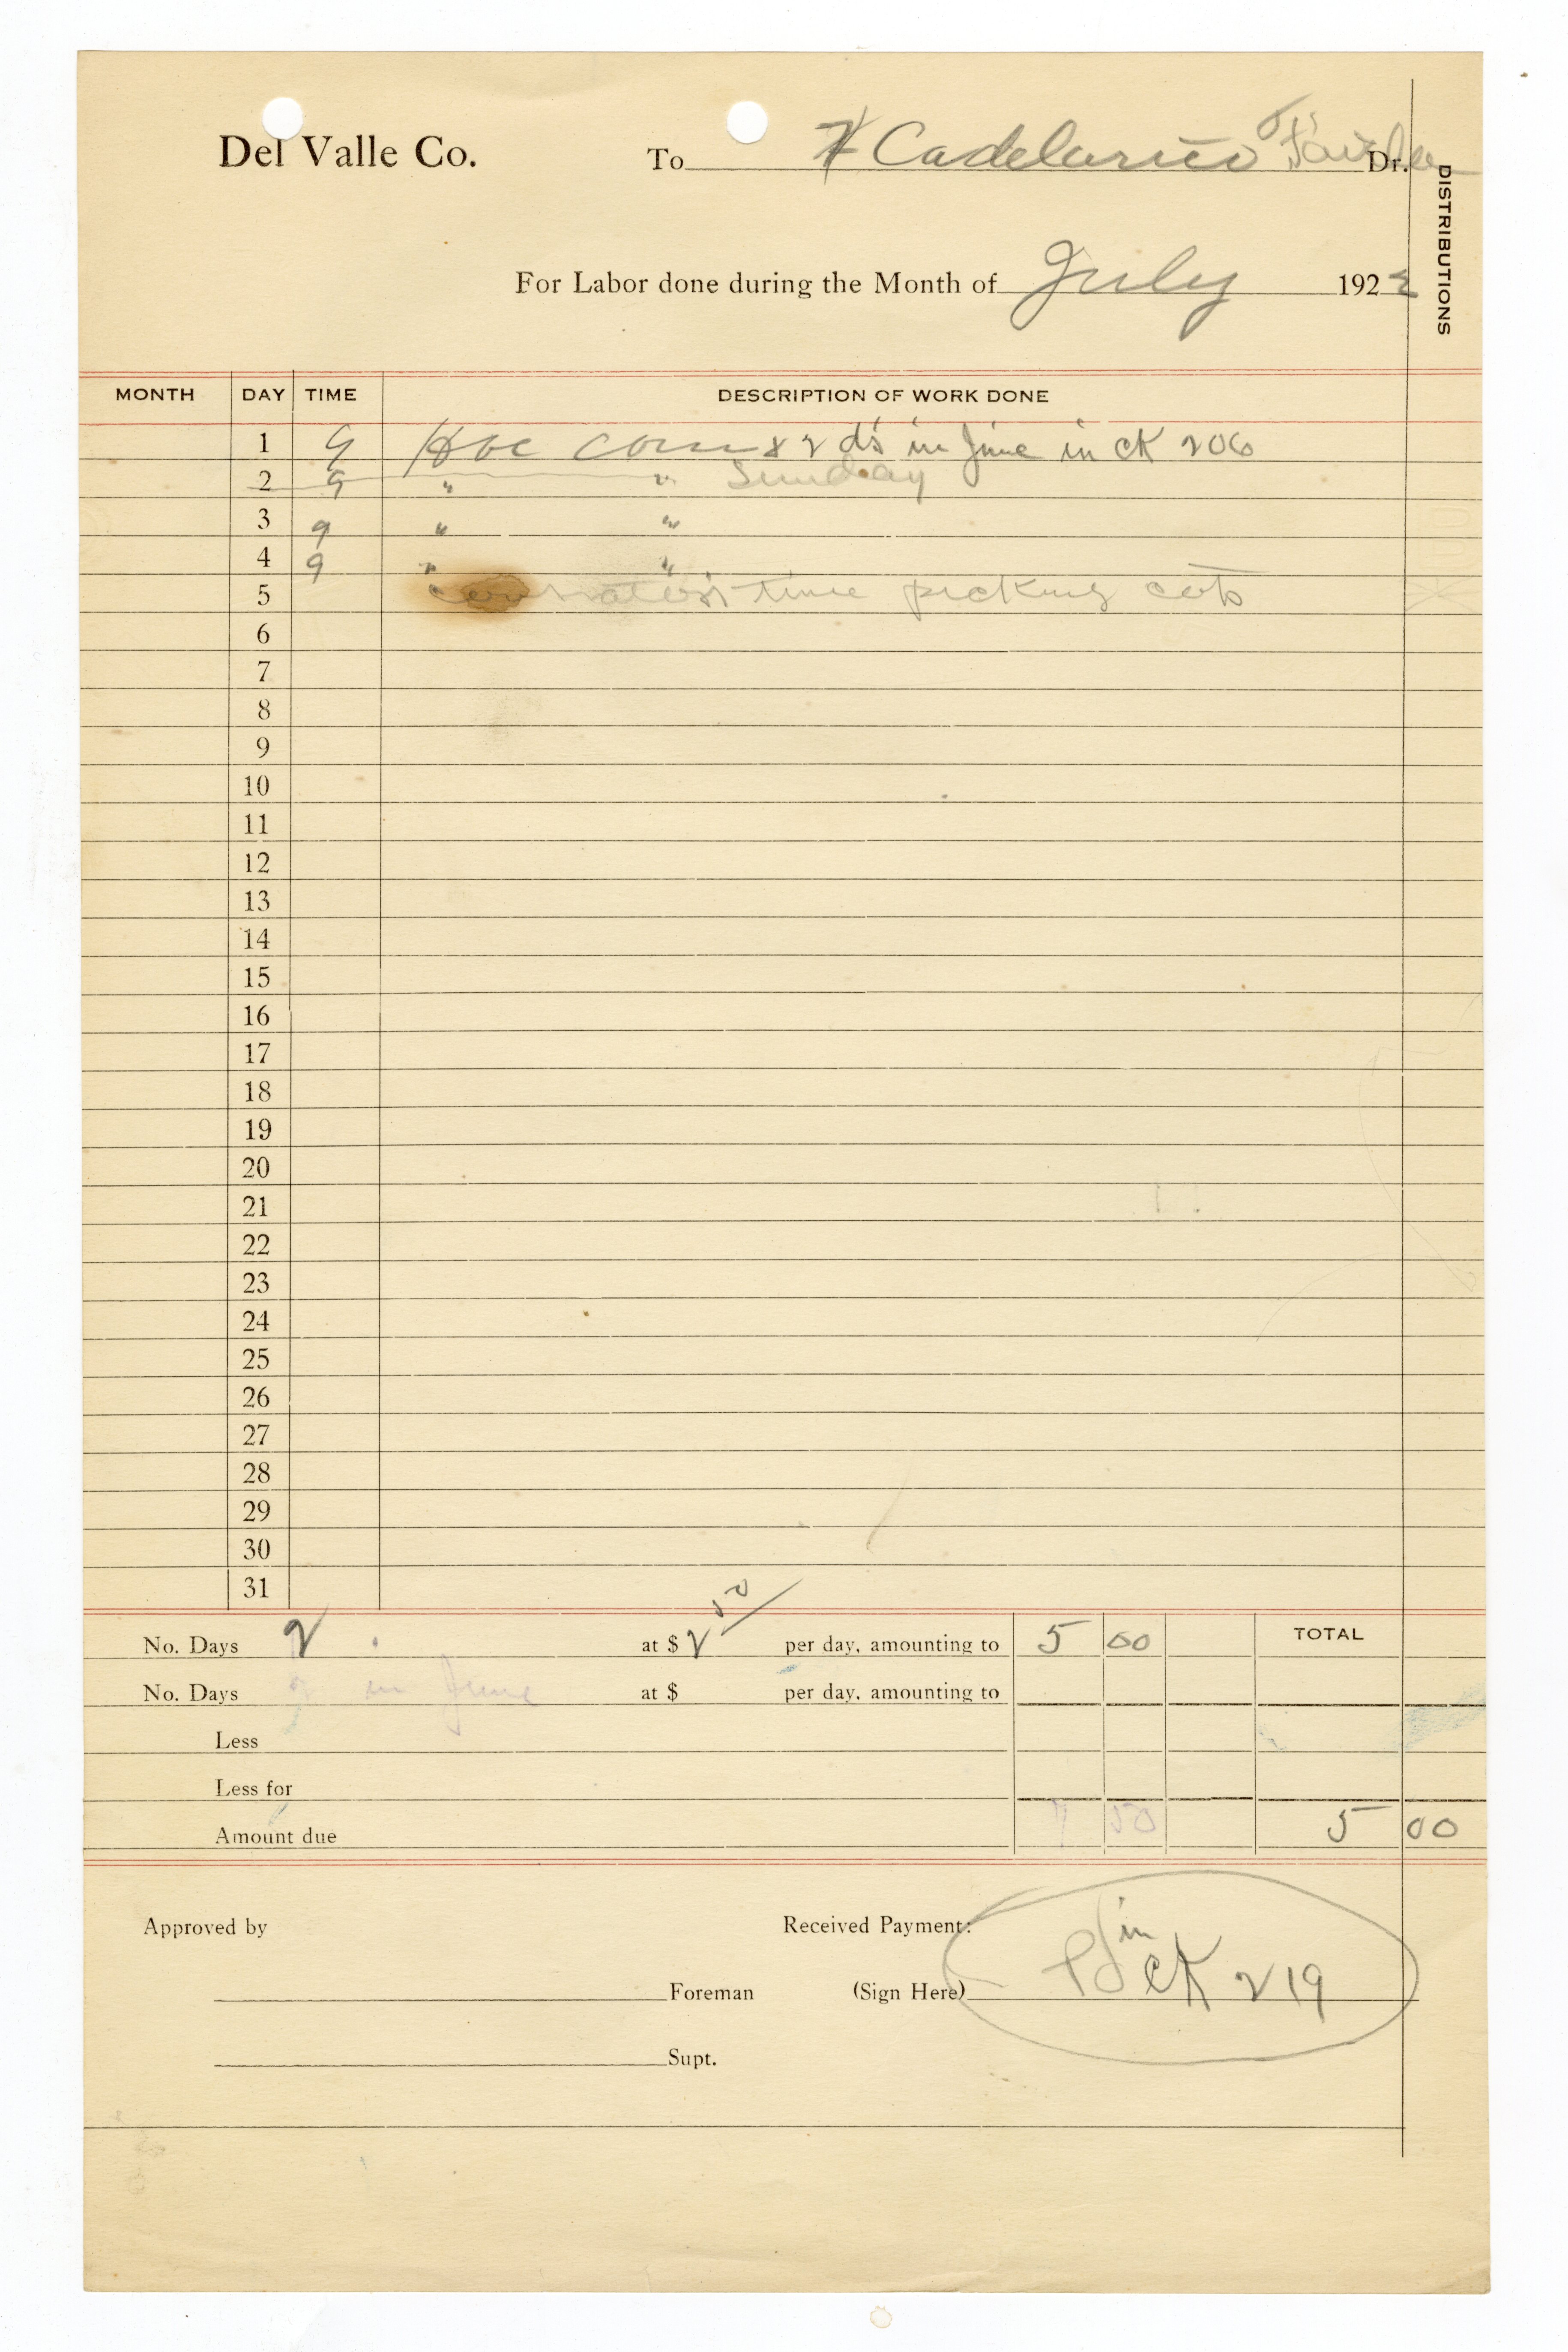 Del Valle Co.
To Cadelario Dr.
DISTRIBUTIONS
For Labor done during the Month of July 1922
MONTH DAY TIME DESCRIPTION OF WORK DONE
1 9 Hoe corn & 2 ds in June in CK 206
2 9 " " Sunday
3 9 " "
4 9 " "
5 time picking cots
6
7
8
9
10
11
12
13
14
15
16
17
18
19
20
21
22
23
24
25
26
27
28
29
30
31
No. Days 2 at $ 2 50/ per day, amounting to 5 00 TOTAL
No. Days 2 in June at $ per day, amounting to
Less
Less for
Amount due 7 50 5 00
Approved by Received Payment:
Foreman (Sign Here) Pd in CK 219
Supt.